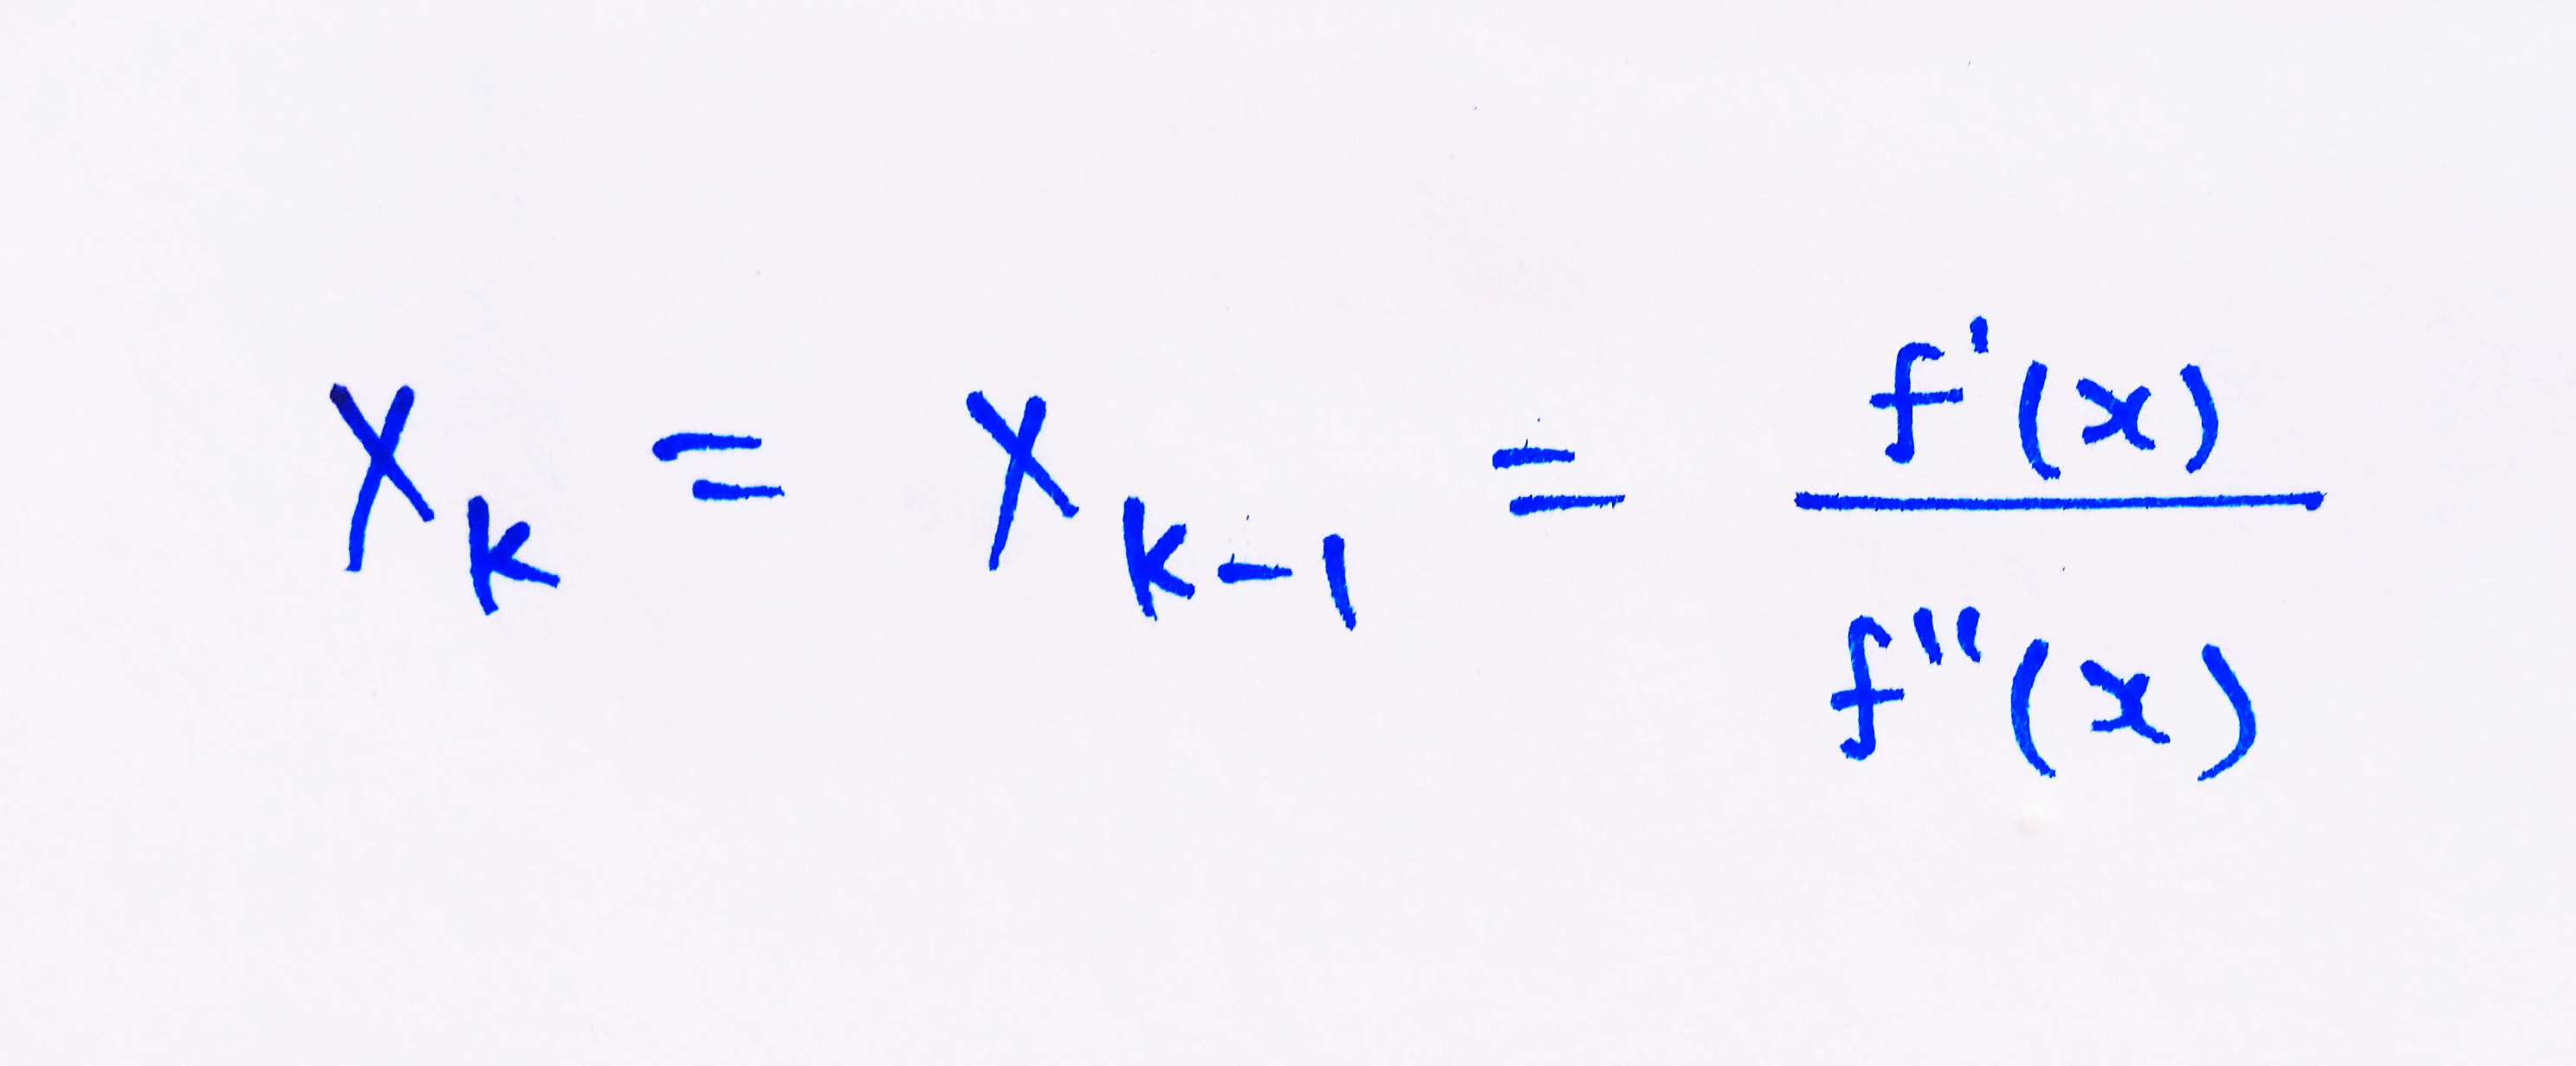 X_k = X_{k-1} = \frac{f'(x)}{f''(x)}